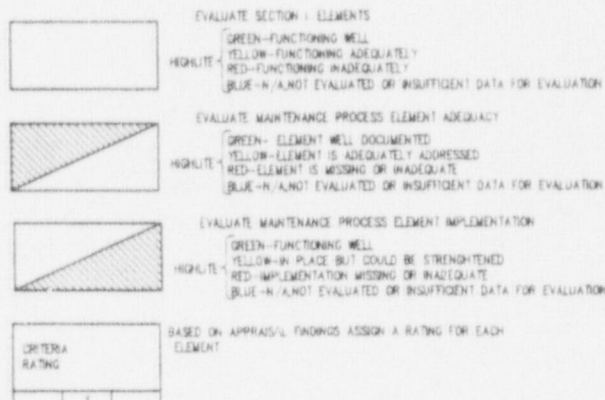 EVALUATE SECTION I ELEMENTS
HIGHLITE
GREEN-FUNCTIONING WELL
YELLOW-FUNCTIONING ADEQUATELY
RED-FUNCTIONING INADEQUATELY
BLUE-N/A,NOT EVALUATED OR INSUFFICIENT DATA FOR EVALUATION
EVALUATE MAINTENANCE PROCESS ELEMENT ADEQUACY
HIGHLITE
GREEN- ELEMENT WELL DOCUMENTED
YELLOW-ELEMENT IS ADEQUATELY ADDRESSED
RED-ELEMENT IS MISSING OR INADEQUATE
BLUE-N/A,NOT EVALUATED OR INSUFFICIENT DATA FOR EVALUATION
EVALUATE MAINTENANCE PROCESS ELEMENT IMPLEMENTATION
HIGHLITE
GREEN-FUNCTIONING WELL
YELLOW-IN PLACE BUT COULD BE STRENGHTENED
RED-IMPLEMENTATION MISSING OR INADEQUATE
BLUE-N/A,NOT EVALUATED OR INSUFFICIENT DATA FOR EVALUATION
BASED ON APPRAISAL FINDINGS ASSIGN A RATING FOR EACH
ELEMENT
CRITERIA
RATING